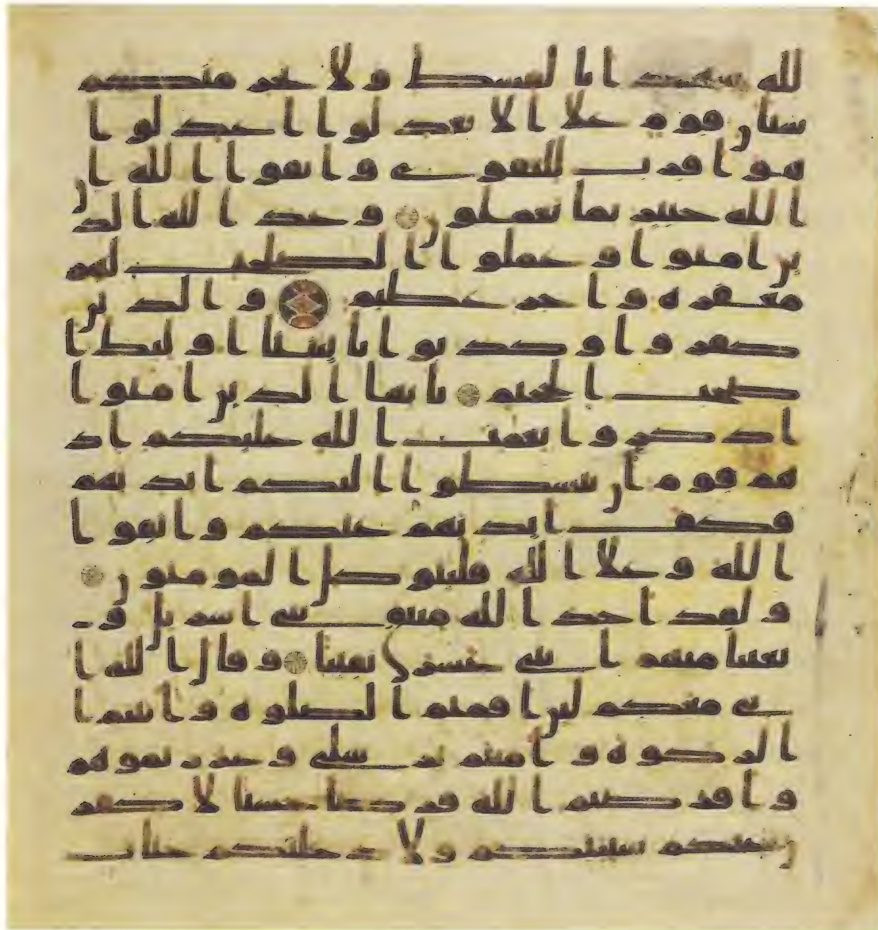 لله شهدا بالقسط ولا يجرمنكم
شنان قوم علا الا تعدلوا اعدلوا
هو اقرب للتقوى واتقوا الله ان
الله خبير بما تعملون وعد الله الذ
ين امنوا وعملوا الصلحت لهم
مغفرة واجر عظيم والذين
كفروا وكذبوا بايتنا اوليك ا
صحب الجحيم يايها الذين امنوا
اذكروا نعمت الله عليكم اذ
هم قوم ان يبسطوا اليكم ايديهم
فكف ايديهم عنكم واتقوا
الله وعلا الله فليتوكل المومنون
ولقد اخذ الله ميثق بني اسريل و
بعثنا منهم اثني عشر نقيبا وقال الله ا
ني معكم لين اقمتم الصلوة واتيتم ا
لزكوة وامنتم برسلي وعزرتموهم
واقرضتم الله قرضا حسنا لاكفر
ن عنكم سيتكم ولادخلنكم جنات